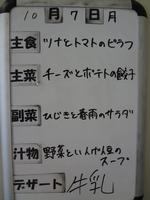 10月7日月
主食 ツナとトマトのピラフ
主菜 チーズとポテトの餃子
副菜 ひじきと春雨のサラダ
汁物 野菜といんげん豆の
スープ
デザート 牛乳